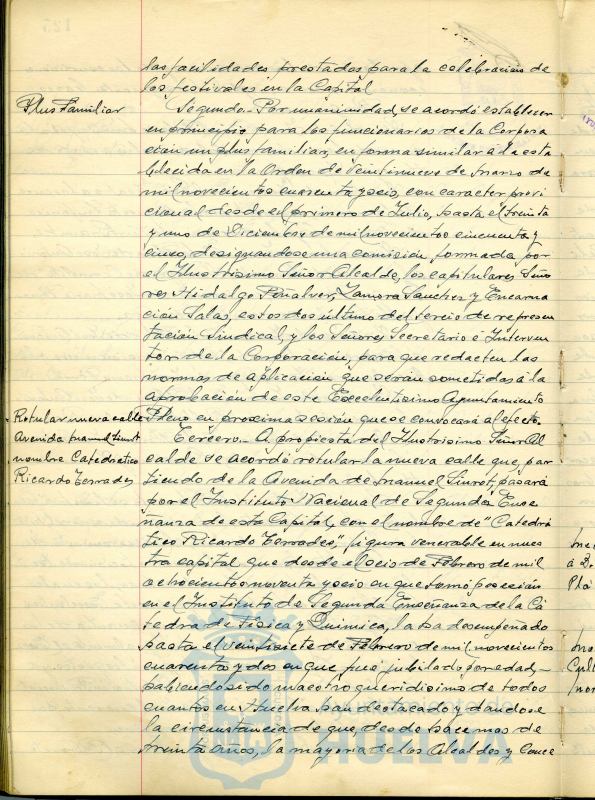 las facilidades prestadas para la celebracion de
los festivales en la Capital
Plus Familiar
Segundo.- Por unanimidad, se acordó establecer
en principio para los funcionarios de la Corpora
cion un plus familiar, en forma similar á la esta
blecida en la Orden de veintinueve de Marzo de
mil novecientos cuarenta y seis, con caracter provi
cional desde el primero de Julio, hasta el treinta
y uno de Diciembre de mil novecientos cincuenta y
cinco, designandose una comisión formada por
el Ilustrisimo Señor Alcalde, los capitulares Seño
res Hidalgo Peñalver, Zamora Sanchez y Encarna
ción Salas, estos dos último del tercio de represen
tación Sindical, y los Señores Secretario é Interven
tor de la Corporación, para que redacten las
normas de aplicación que serán sometidas á la
aprobación de este Excelentisimo Ayuntamiento
Pleno en proxima sesión que se convocará al efecto.
Rotular nueva calle
Avenida Manuel Siurot
nombre Catedratico
Ricardo Terrades
Tercero.- A propuesta del Ilustrisimo Señor Al
calde se acordó rotular la nueva calle que, par
tiendo de la Avenida de Manuel Siurot, pasará
por el Instituto Nacional de Segunda Ense
ñanza de esta Capital, con el nombre de "Catedrá
tico Ricardo Terrades", figura venerable en nues
tra capital que desde el seis de Febrero de mil
ochocientos noventa y ocio en que tomó posesión
en el Instituto de Segunda Enseñanza de la Cá
tedra de Fisica y Quimica, la ha desempeñado
hasta el veintisiete de Febrero de mil novecientos
cuarenta y dos en que fué jubilado por edad,
habiendo sido maestro queridisimo de todos
cuantos en Huelva han destacado y dandose
la circunstancia de que, desde hace mas de
treinta años, la mayoria de los Alcaldes y Conce
HUELVA